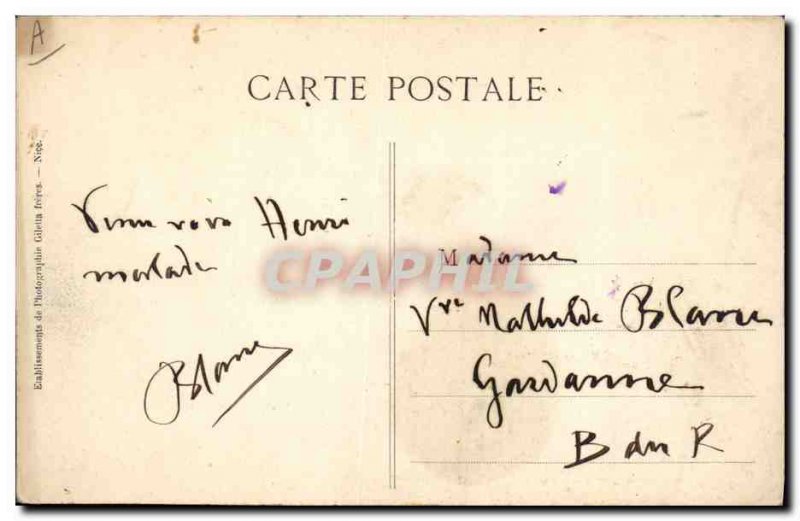 A
CARTE POSTALE
Etablissements de Photographie Giletta frères. — Nice.
Venu voir Henri
malade
Blanc
CPAPHIL
Madame
Vve Mathilde Blanc
Gardanne
B du R